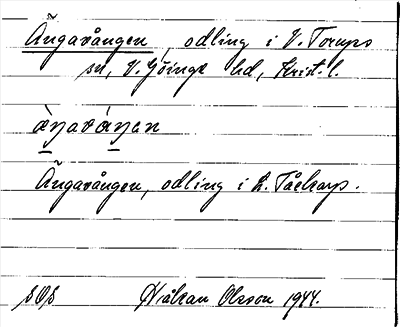 Ängavången, odling i V. Torups
sn, V. Göinge hd, Krist. l.
àŋavåŋen
Ängavången, odling i L. Tåckarp.
SOS Håkan Olsson 1944.